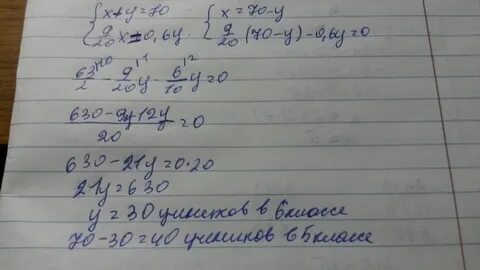 {x+y=70 {x=70-y
{9/20 x = 0,6y {9/20 (70-y)-0,6y=0
63/2 - 9/20 y - 6/10 y = 0
630-9y-12y / 20 = 0
630-21y=0·20
21y=630
y=30 учеников в 6 классе
70-30=40 учеников в 5 классе